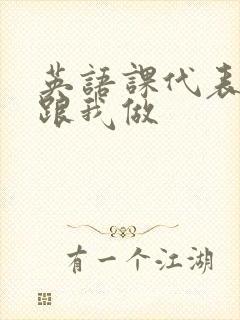 英語課代表
跟我做
有一个江湖